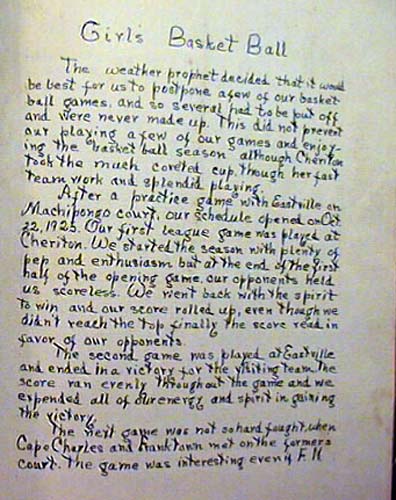 Girl's Basket Ball
The weather prophet decided that it would
be best for us to postpone a few of our basket-
ball games, and so several had to be put off
and were never made up. This did not prevent
our playing a few of our games and enjoy-
ing the basket ball season although Cheriton
took the much coveted cup, though her fast
team work and splendid playing.
After a practice game with Eastville on
Machipongo court, our schedule opened on Oct
22, 1925. Our first league game was played at
Cheriton. We started the season with plenty of
pep and enthusiasm but at the end of the first
half of the opening game, our opponents held
us scoreless. We went back with the spirit
to win and our score rolled up, even though we
didn't reach the top finally the score read in
favor of our opponents.
The second game was played at Eastville
and ended in a victory for the visiting team. The
score ran evenly throughout the game and we
expended all of our energy and spirit in gaining
the victory.
The next game was not so hard fought, when
Cape Charles and Franktown met on the formers
court. The game was interesting even if F. N